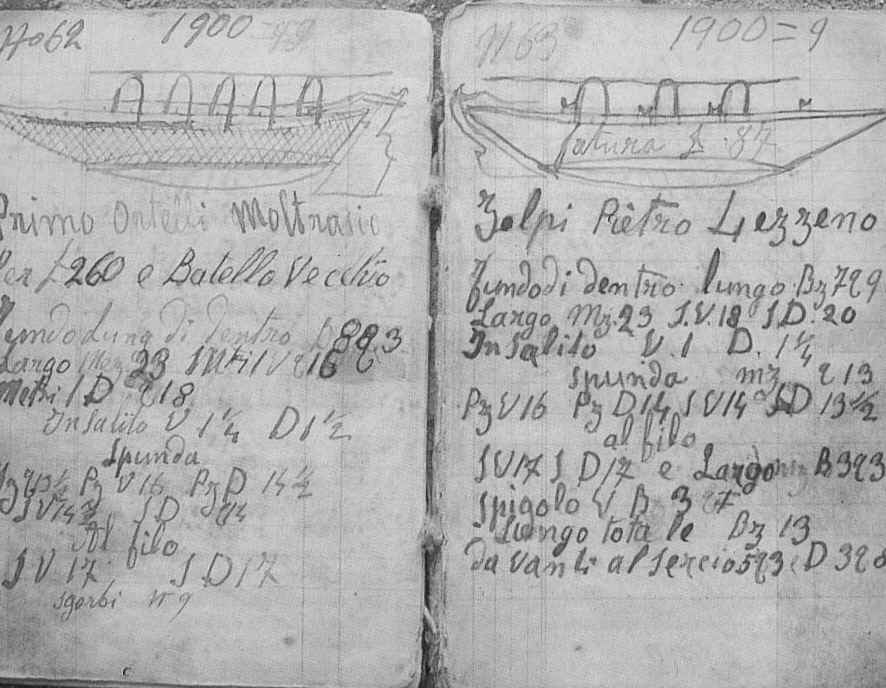 No 62 1900
Primo Ortelli Moltrasio
Per £ 260 e Batello Vecchio
Fundo Lung di dentro B 8 9 3
Largo Mez 23
Metri S D 9 18
In Salito V 1 1/4 D 1 1/2
Spunda
Pz V 16 Pz D 14 1/2
S V 14 1/2 S D 14
Al filo
S V 17 S D 17
sgorbi N 9
N 63 1900 = 9
fatura £ 87
Zelpi Piètro Lezzeno
fundo di dentro lungo Bz 7 q 9
Largo Mz. 23 S.V. 18 S D. 20
In Salito V. 1 D. 1 1/4
spunda mz q 13
Pz V 16 Pz D 14 S V 14 S D 13 1/2
al filo
S V 17 S D 17 e Largo B 3 q 3
Spigolo V B 3 q 7
Lungo totale Bz 13
da vanti al sercio 5 q 3 D 3 q 8